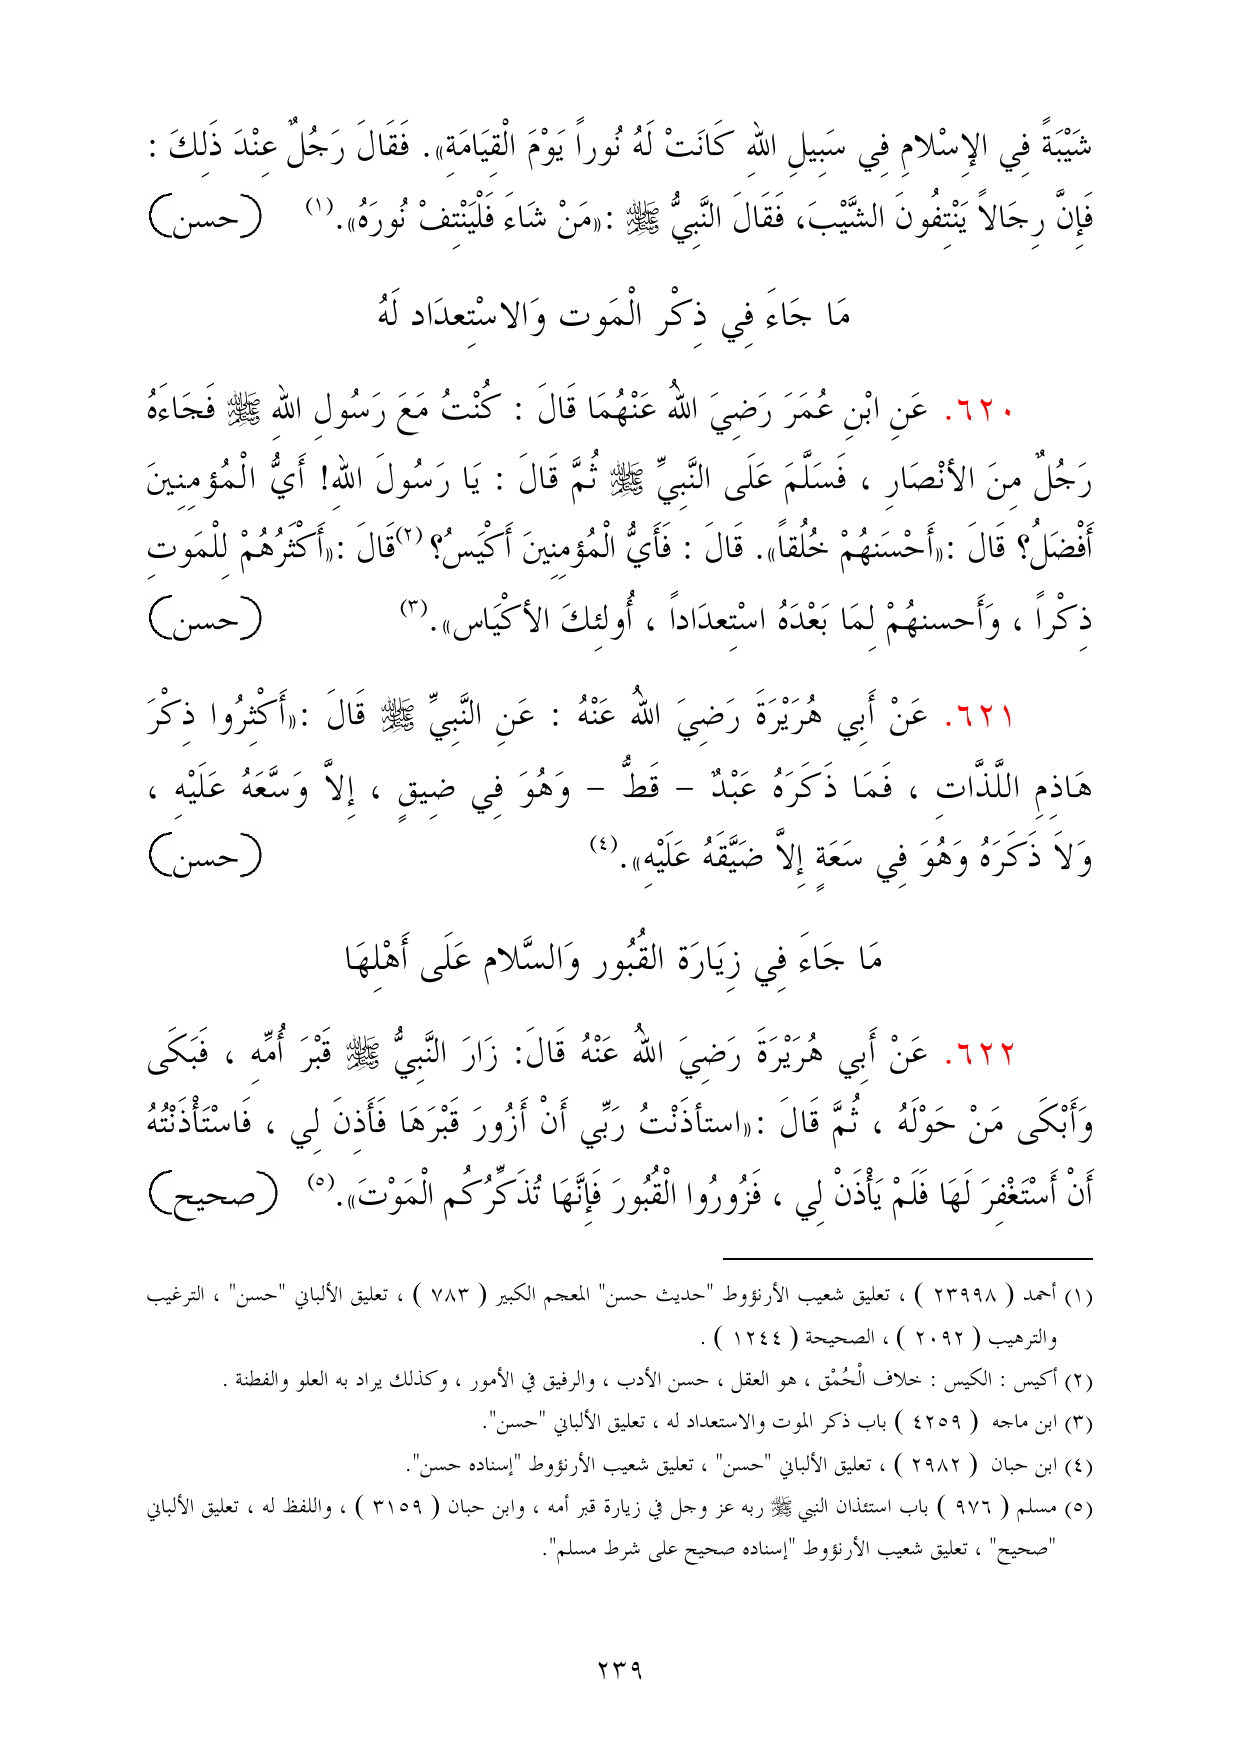 شَيْبَةً فِي الإِسْلامِ فِي سَبِيلِ اللهِ كَانَتْ لَهُ نُوراً يَوْمَ الْقِيَامَةِ». فَقَالَ رَجُلٌ عِنْدَ ذَلِكَ :
فَإِنَّ رِجَالاً يَنْتِفُونَ الشَّيْبَ، فَقَالَ النَّبِيُّ ﷺ :«مَنْ شَاءَ فَلْيَنْتِفْ نُورَهُ».(١) (حسن)
مَا جَاءَ فِي ذِكْر الْمَوت وَالاسْتِعدَاد لَهُ
٦٢٠. عَنِ ابْنِ عُمَرَ رَضِيَ اللهُ عَنْهُمَا قَالَ : كُنْتُ مَعَ رَسُولِ اللهِ ﷺ فَجَاءَهُ
رَجُلٌ مِنَ الأنْصَارِ ، فَسَلَّمَ عَلَى النَّبِيِّ ﷺ ثُمَّ قَالَ : يَا رَسُولَ اللهِ! أَيُّ الْمُؤمِنِينَ
أَفْضَلُ؟ قَالَ :«أَحْسَنهُمْ خُلُقاً». قَالَ : فَأَيُّ الْمُؤمِنِينَ أَكْيَسُ؟ (٢)قَالَ :«أَكْثَرُهُمْ لِلْمَوتِ
ذِكْراً ، وَأَحسنهُمْ لِمَا بَعْدَهُ اسْتِعدَاداً ، أُولئِكَ الأكْيَاس».(٣) (حسن)
٦٢١. عَنْ أَبِي هُرَيْرَةَ رَضِيَ اللهُ عَنْهُ : عَنِ النَّبِيِّ ﷺ قَالَ :«أَكْثِرُوا ذِكْرَ
هَاذِمِ اللَّذَّاتِ ، فَمَا ذَكَرَهُ عَبْدٌ – قَطُّ – وَهُوَ فِي ضِيقٍ ، إِلاَّ وَسَّعَهُ عَلَيْهِ ،
وَلاَ ذَكَرَهُ وَهُوَ فِي سَعَةٍ إِلاَّ ضَيَّقَهُ عَلَيْهِ».(٤) (حسن)
مَا جَاءَ فِي زِيَارَة القُبُور وَالسَّلام عَلَى أَهْلِهَا
٦٢٢. عَنْ أَبِي هُرَيْرَةَ رَضِيَ اللهُ عَنْهُ قَالَ: زَارَ النَّبِيُّ ﷺ قَبْرَ أُمِّهِ ، فَبَكَى
وَأَبْكَى مَنْ حَوْلَهُ ، ثُمَّ قَالَ :«استأذَنْتُ رَبِّي أَنْ أَزُورَ قَبْرَهَا فَأَذِنَ لِي ، فَاسْتَأْذَنْتُهُ
أَنْ أَسْتَغْفِرَ لَهَا فَلَمْ يَأْذَنْ لِي ، فَزُورُوا الْقُبُورَ فَإِنَّهَا تُذَكِّرُكُم الْمَوْتَ».(٥) (صحيح)
(١) أحمد ( ٢٣٩٩٨ ) ، تعليق شعيب الأرنؤوط "حديث حسن" المعجم الكبير ( ٧٨٣ ) ، تعليق الألباني "حسن" ، الترغيب
والترهيب ( ٢٠٩٢ ) ، الصحيحة ( ١٢٤٤ ) .
(٢) أكيس : الكيس : خلاف الْحُمْق ، هو العقل ، حسن الأدب ، والرفيق في الأمور ، وكذلك يراد به العلو والفطنة .
(٣) ابن ماجه ( ٤٢٥٩ ) باب ذكر الموت والاستعداد له ، تعليق الألباني "حسن".
(٤) ابن حبان ( ٢٩٨٢ ) ، تعليق الألباني "حسن" ، تعليق شعيب الأرنؤوط "إسناده حسن".
(٥) مسلم ( ٩٧٦ ) باب استئذان النبي ﷺ ربه عز وجل في زيارة قبر أمه ، وابن حبان ( ٣١٥٩ ) ، واللفظ له ، تعليق الألباني
"صحيح" ، تعليق شعيب الأرنؤوط "إسناده صحيح على شرط مسلم".
٢٣٩